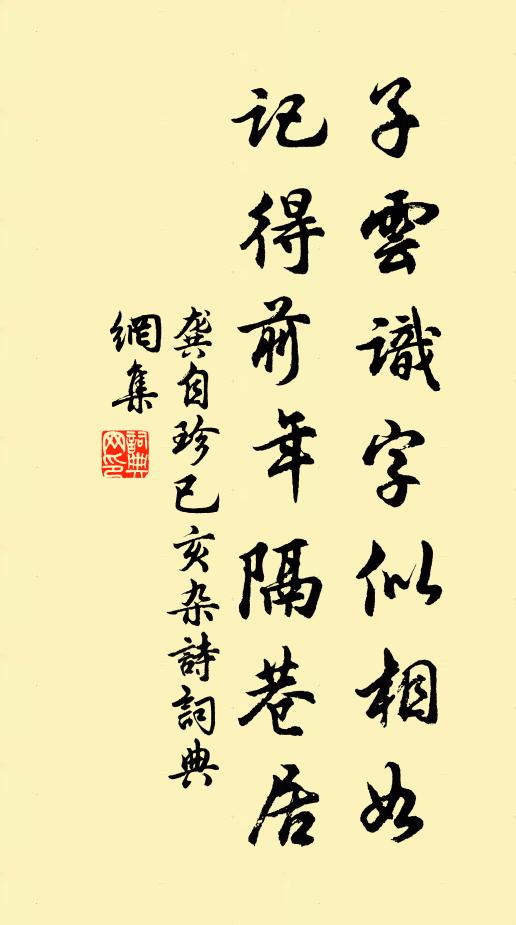 子雲識字似相如
記得前年隔巷居
龔自珍己亥杂詩詞典
網集
詞典
网印